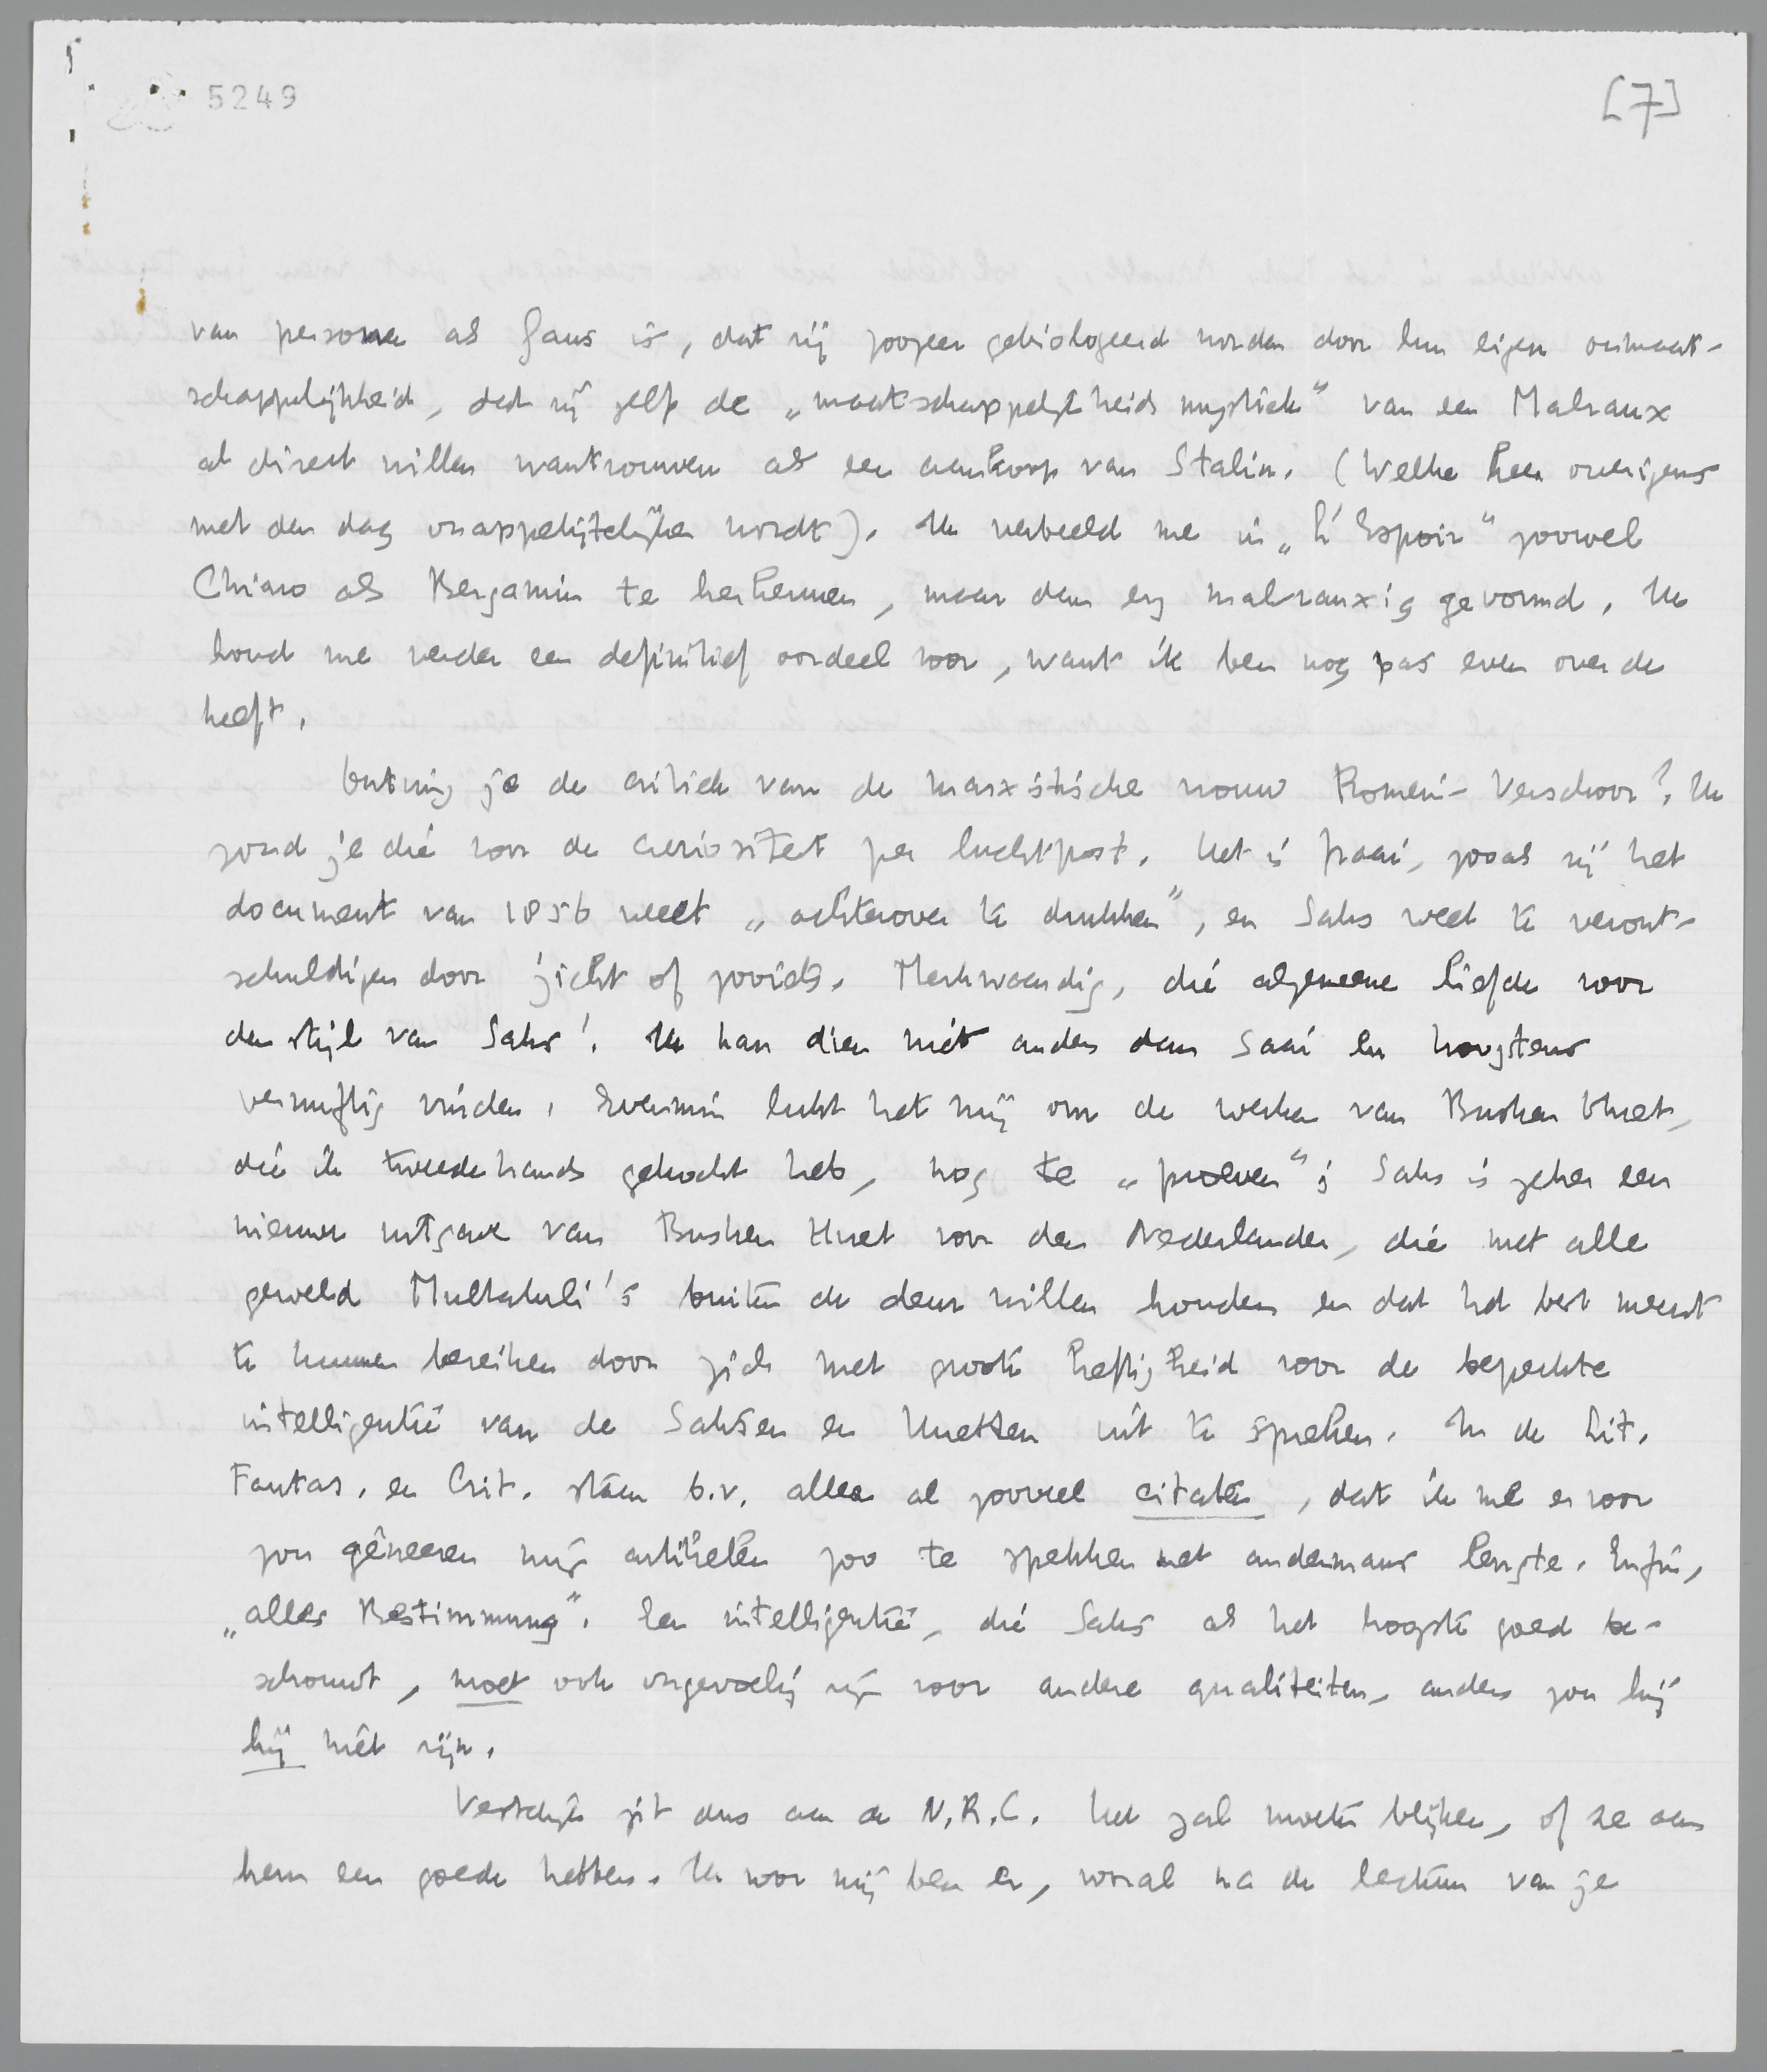 5249
[7]
van personen als Gans is, dat zij zoozeer gebiologeerd worden door hun eigen onmaat-
schappelijkheid, dat zij zelfs de „maatschappelijkheidsmystiek” van een Malraux
al direct willen wantrouwen als een aankoop van Stalin. (Welke heer overigens
met den dag onappetijtelijker wordt). Ik verbeeld me in „L'Espoir” zoowel
Chiaro als Bergamin te herkennen, maar dan erg malrauxig gevormd. Ik
houd me verder een definitief oordeel voor, want ik ben nog pas even over de
helft.
Ontving je de critiek van de marxistische vrouw Romein-Verschoor? Ik
zond je die voor de curiositeit per luchtpost. Het is fraai, zooals zij het
document van 1856 weet „achterover te drukken”, en Saks weet te veront-
schuldigen door jicht of zooiets. Merkwaardig, die algemeene liefde voor
den stijl van Saks! Ik kan dien niet anders dan saai en hoogstens
vernuftig vinden. Evenmin lukt het mij om de werken van Busken Huet,
die ik tweedehands gekocht heb, nog te „proeven”; Saks is zeker een
nieuwe uitgave van Busken Huet voor den Nederlander, die met alle
geweld Multatuli's buiten de deur willen houden en dat het best meent
te kunnen bereiken door zich met groote heftigheid voor de beperkte
intelligentie van de Saksen en Huetten uit te spreken. In de Lit.
Fantas. en Crit. staan b.v. alleen al zooveel citaten, dat ik me ervoor
zou gêneeren mijn artikelen zoo te spekken met andermans lengte. Enfin,
„alles Bestimmung”. Een intelligentie, die Saks als het hoogste goed be-
schouwt, moet ook ongevoelig zijn voor andere qualiteiten, anders zou hij
hij niet zijn.
Vestdijk zit dus aan de N.R.C. Het zal moeten blijken, of ze aan
hem een goede hebben. Ik voor mij ben er, vooral na de lectuur van je